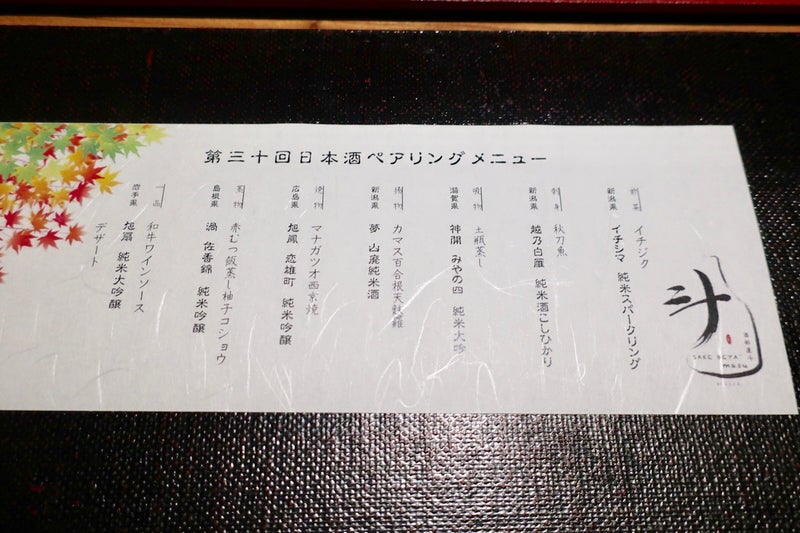 第三十回日本酒ペアリングメニュー
前菜
イチジク
新潟県
イチシマ 純米スパークリング
刺身
秋刀魚
新潟県
越乃白雁 純米酒こしひかり
吸物
土瓶蒸し
滋賀県
神開 みやの四 純米大吟
揚物
カマス百合根天麩羅
新潟県
夢 山廃純米酒
焼物
マナガツオ西京焼
広島県
旭鳳 恋雄町 純米吟醸
蒸物
赤むつ飯蒸し柚子コショウ
島根県
渦 佐香錦 純米吟醸
一品
和牛ワインソース
岩手県
旭扇 純米大吟醸
デザート
斗
SAKE BEYA
masu